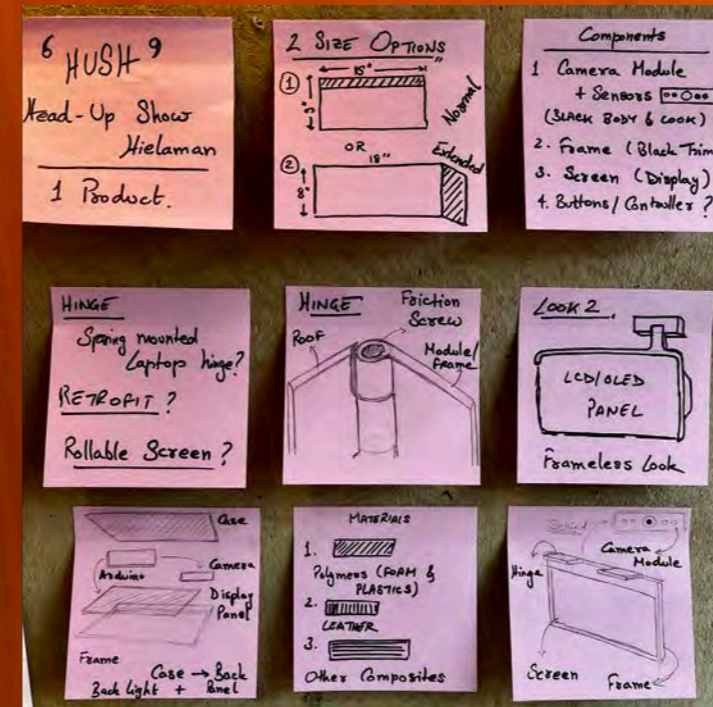 6 HUSH 9
Head-Up Show
Hielaman
1 Product.
2 SIZE OPTIONS
1
15"
5"
Normal
OR
2
18"
8"
Extended
Components
1 Camera Module
+ Sensors
(BLACK BODY & LOOK)
2. Frame (Black Trim
3. Screen (Display)
4. Buttons/Controller ?
HINGE
Spring mounted
Laptop hinge?
RETROFIT ?
Rollable Screen ?
HINGE
Friction
Screw
Roof
Module/
Frame
LOOK 2.
LCD/OLED
PANEL
Frameless Look
Case
Arduino
Camera
Display
Panel
Frame
Case → Back
Back light + Panel
MATERIALS
1.
Polymers (FOAM &
PLASTICS)
2.
LEATHER
3.
Other Composites
Behind
Camera
Module
Hinge
Screen
Frame